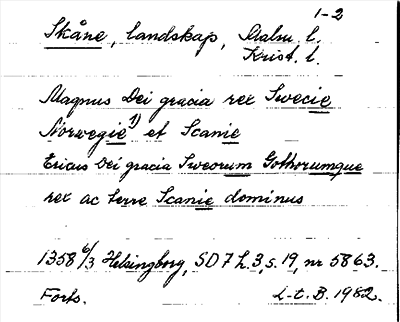 1-2
Skåne, landskap, Malm. l.
Krist. l.
Magnus Dei gracia rex Swecie
Norwegie 1) et Scanie
Ericus Dei gracia Sweorum Gothorumque
rex ac terre Scanie dominus
1358 6/3 Helsingborg, SD 7 h. 3, s. 19, nr 5863.
Forts.
L-t. B. 1982.